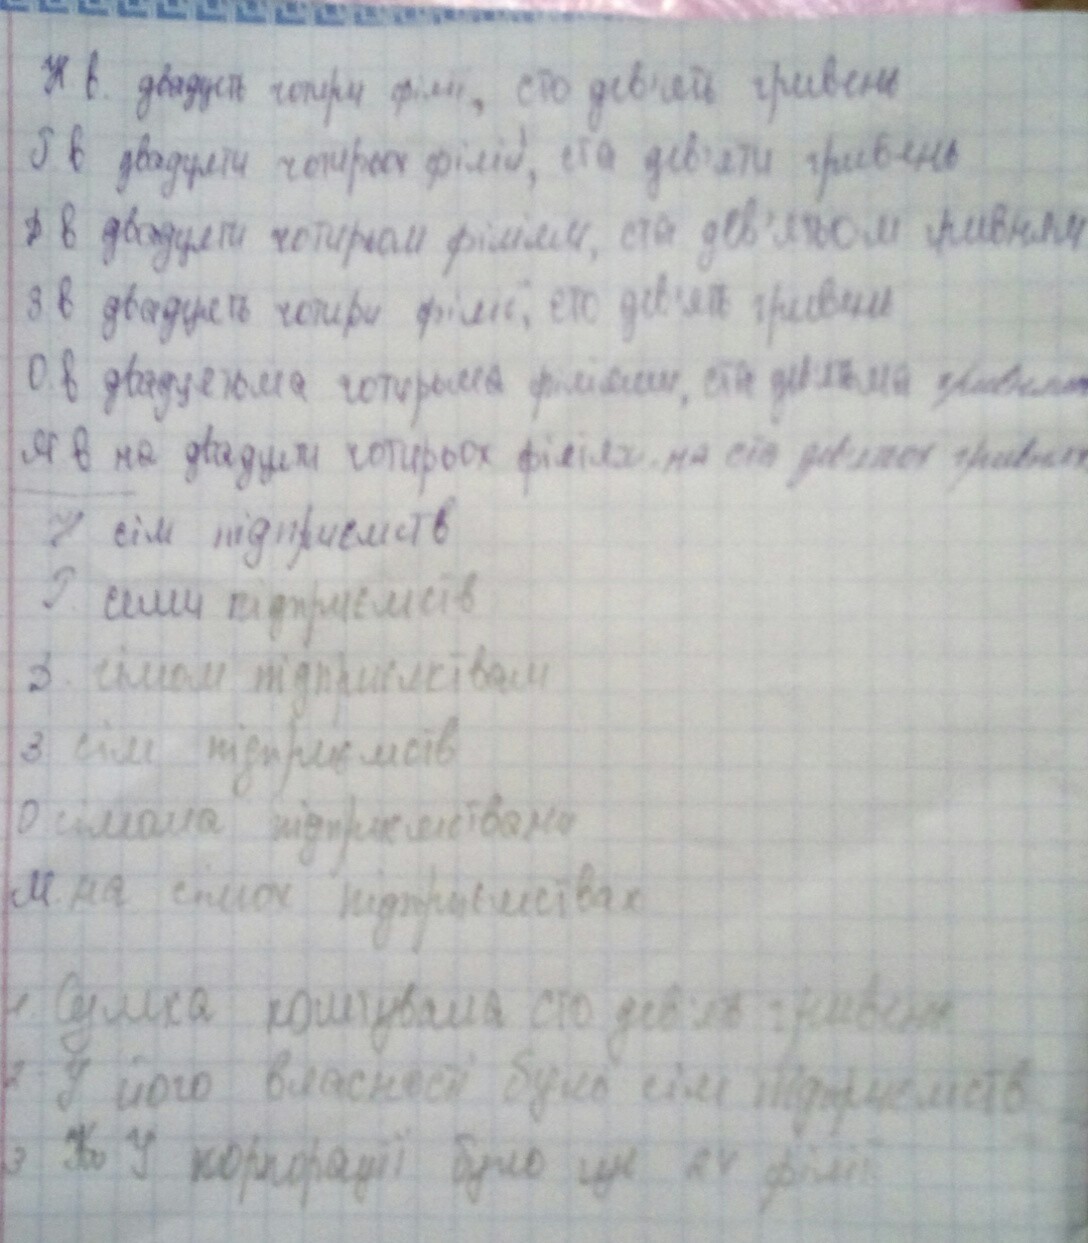 Н в. двадцять чотири філії, сто дев'ять гривень
Г в двадцяти чотирьох філій, ста дев'яти гривень
Д в двадцяти чотирьом філіям, ста дев'ятьом гривням
З в двадцять чотири філії, сто дев'ять гривень
О. в двадцятьма чотирьма філіями, ста дев'ятьма гривнями
М в на двадцяти чотирьох філіях. на ста дев'ятьох гривнях
Н сім підприємств
Г. семи підприємств
Д. сімом підприємствам
З сім підприємств
О сімома підприємствами
М. на сімох підприємствах
1. Сумка коштувала сто дев'ять гривень
2 У його власності було сім підприємств
3 У корпорації було ще 24 філії